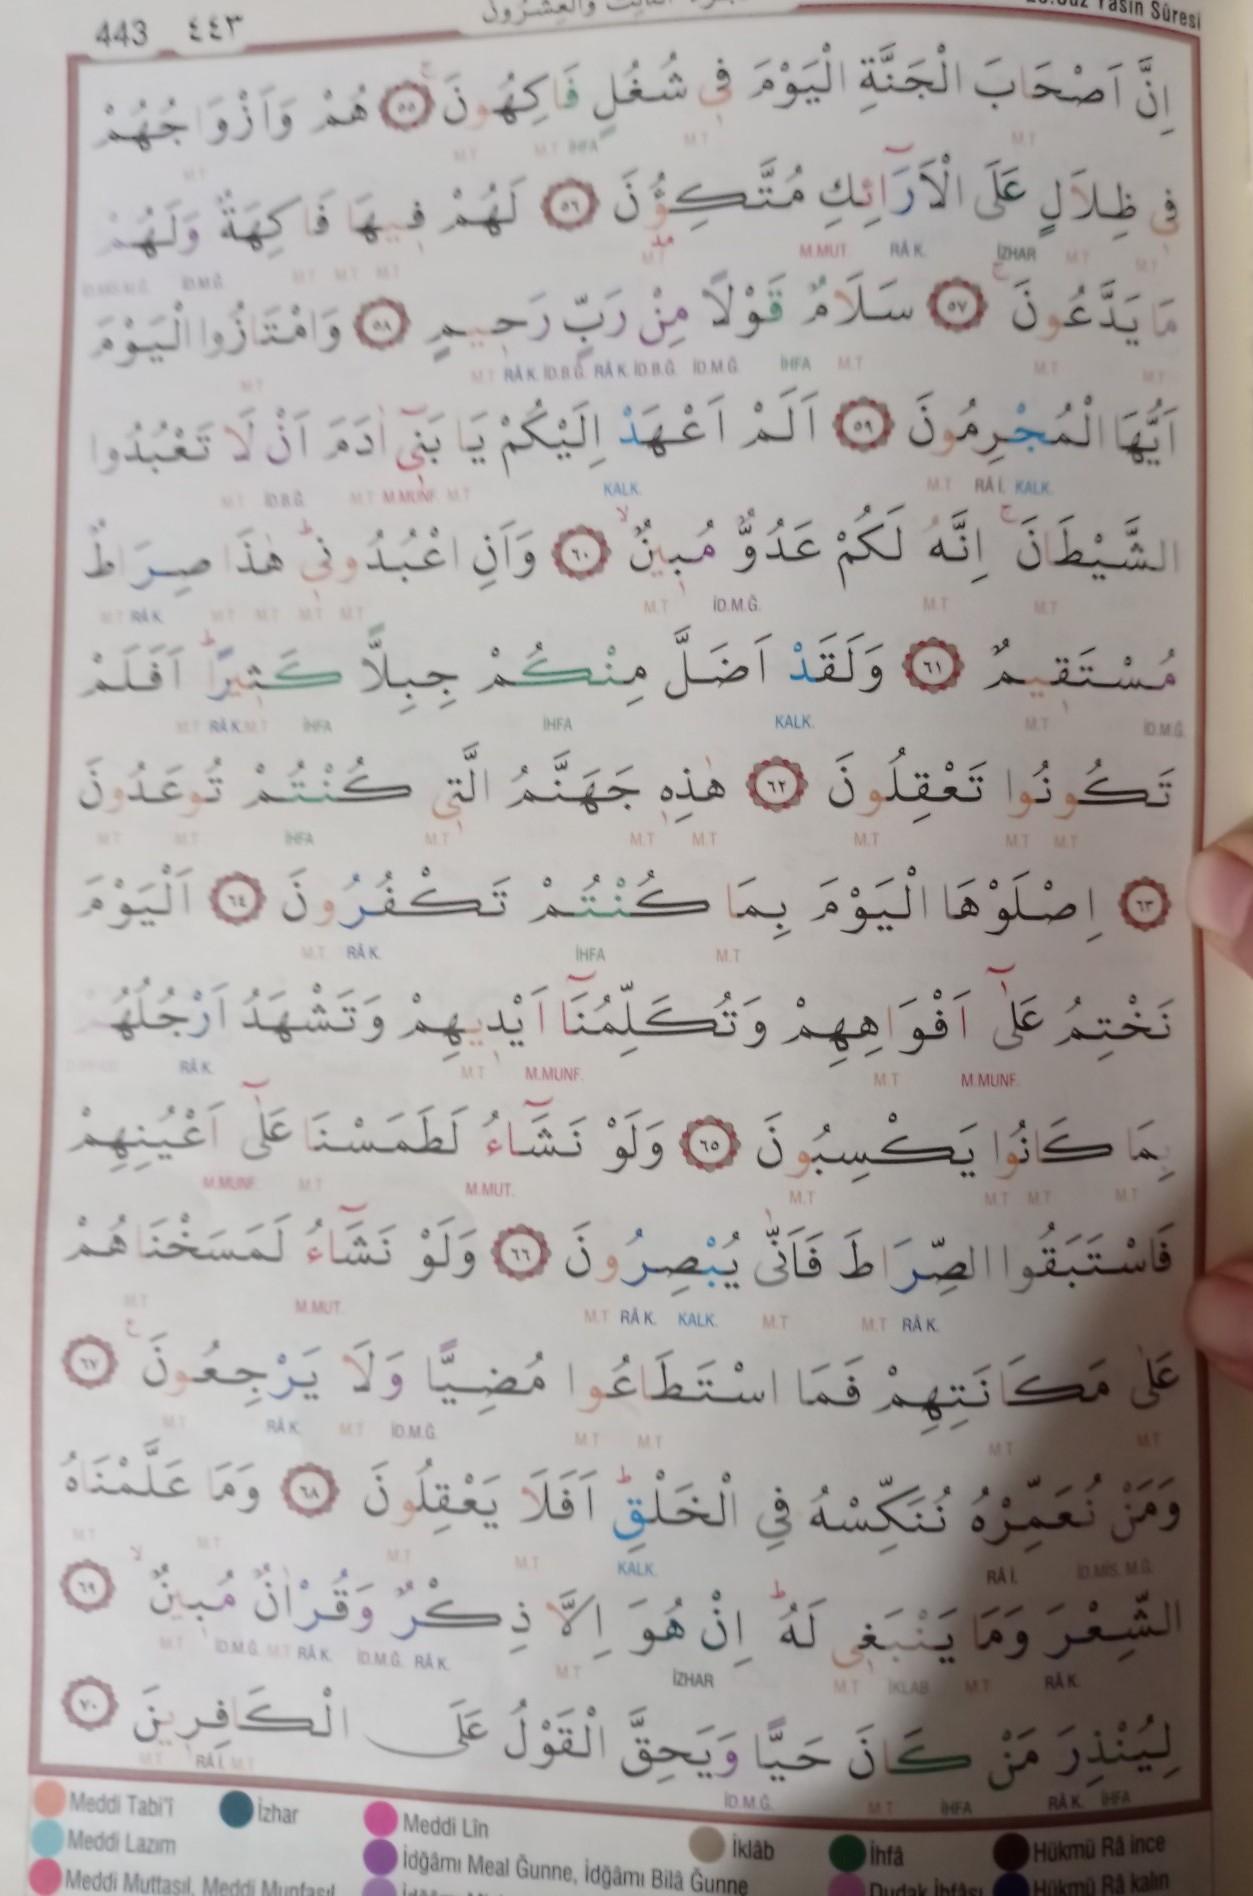 443 ٤٤٣
الثالث والعشرون
Yasin Sûresi
اِنَّ اَصْحَابَ الْجَنَّةِ الْيَوْمَ فٖى شُغُلٍ فَاكِهُونَ ۚ ﴿٥٥﴾ هُمْ وَاَزْوَاجُهُمْ
M.T M.T İHFA M.T M.T M.T
فٖى ظِلَالٍ عَلَى الْاَرَٓائِكِ مُتَّكِؤُ۫نَ ﴿٥٦﴾ لَهُمْ فٖيهَا فَاكِهَةٌ وَلَهُمْ
M.T M.T İZHAR RÂ K. M.MUT. مد M.T M.T M.T M.T İD.M.Ğ. İD.MİS.M.Ğ.
مَا يَدَّعُونَ ۚ ﴿٥٧﴾ سَلَامٌ قَوْلًا مِنْ رَبٍّ رَحٖيمٍ ﴿٥٨﴾ وَامْتَازُوا الْيَوْمَ
M.T M.T M.T İHFA İD.M.Ğ. İD.B.Ğ. RÂ K. İD.B.Ğ. RÂ K. M.T M.T
اَيُّهَا الْمُجْرِمُونَ ﴿٥٩﴾ اَلَمْ اَعْهَدْ اِلَيْكُمْ يَا بَنٖٓى اٰدَمَ اَنْ لَا تَعْبُدُوا
KALK. RÂ İ. M.T KALK. M.T M.MUNF. M.T İD.B.Ğ. M.T
الشَّيْطَانَ ۚ اِنَّهُ لَكُمْ عَدُوٌّ مُبٖينٌ ۙ ﴿٦٠﴾ وَاَنِ اعْبُدُونٖى ؕ هٰذَا صِرَاطٌ
M.T M.T İD.M.Ğ. M.T M.T M.T M.T M.T RÂ K. M.T
مُسْتَقٖيمٌ ﴿٦١﴾ وَلَقَدْ اَضَلَّ مِنْكُمْ جِبِلًّا كَثٖيرًا ؕ اَفَلَمْ
İD.M.Ğ. M.T KALK. İHFA İHFA M.T RÂ K. M.T
تَكُونُوا تَعْقِلُونَ ﴿٦٢﴾ هٰذِهٖ جَهَنَّمُ الَّتٖى كُنْتُمْ تُوعَدُونَ
M.T M.T M.T M.T M.T M.T İHFA M.T M.T
﴿٦٣﴾ اِصْلَوْهَا الْيَوْمَ بِمَا كُنْتُمْ تَكْفُرُونَ ﴿٦٤﴾ اَلْيَوْمَ
M.T İHFA RÂ K. M.T
نَخْتِمُ عَلٰٓى اَفْوَاهِهِمْ وَتُكَلِّمُنَٓا اَيْدٖيهِمْ وَتَشْهَدُ اَرْجُلُهُمْ
M.MUNF. M.T M.MUNF. M.T RÂ K.
بِمَا كَانُوا يَكْسِبُونَ ﴿٦٥﴾ وَلَوْ نَشَٓاءُ لَطَمَسْنَا عَلٰٓى اَعْيُنِهِمْ
M.T M.T M.T M.T M.MUT. M.T M.MUNF.
فَاسْتَبَقُوا الصِّرَاطَ فَاَنّٰى يُبْصِرُونَ ﴿٦٦﴾ وَلَوْ نَشَٓاءُ لَمَسَخْنَاهُمْ
RÂ K. M.T M.T KALK. RÂ K. M.T M.MUT. M.T
عَلٰى مَكَانَتِهِمْ فَمَا اسْتَطَاعُوا مُضِيًّا وَلَا يَرْجِعُونَ ۚ ﴿٦٧﴾
M.T M.T M.T M.T İD.M.Ğ. M.T RÂ K. M.T
وَمَنْ نُعَمِّرْهُ نُنَكِّسْهُ فِي الْخَلْقِ ؕ اَفَلَا يَعْقِلُونَ ﴿٦٨﴾ وَمَا عَلَّمْنَاهُ
İD.MİS. M.Ğ. RÂ İ. KALK. M.T M.T M.T M.T
الشِّعْرَ وَمَا يَنْبَغٖى لَهُ ؕ اِنْ هُوَ اِلَّا ذِكْرٌ وَقُرْاٰنٌ مُبٖينٌ ۙ ﴿٦٩﴾
RÂ K. M.T İKLAB M.T İZHAR M.T RÂ K. İD.M.Ğ. RÂ K. M.T İD.M.Ğ. M.T
لِيُنْذِرَ مَنْ كَانَ حَيًّا وَيَحِقَّ الْقَوْلُ عَلَى الْكَافِرٖينَ ﴿٧٠﴾
İHFA RÂ K. İHFA M.T İD.M.Ğ. M.T RÂ İ. M.T
Meddi Tabi'î İzhar Meddi Lîn İklâb İhfâ Hükmü Râ ince
Meddi Lazım İdğâmı Meal Ğunne, İdğâmı Bilâ Ğunne Hükmü Râ kalın
Meddi Muttasıl, Meddi Munfasıl Dudak İhfâsı